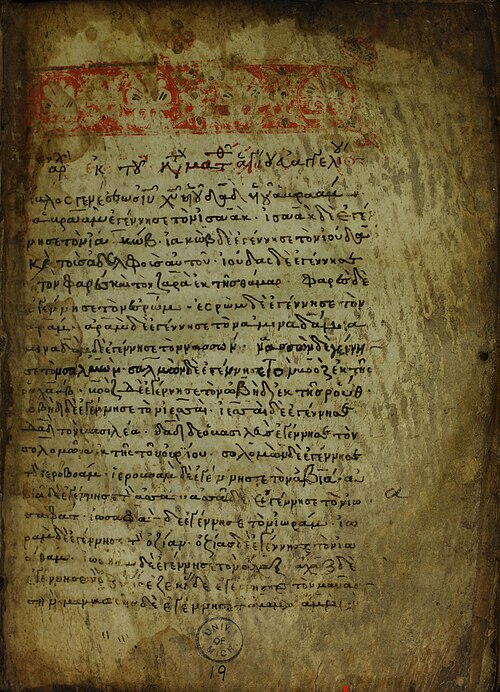 ἐκ τοῦ κατὰ ματθ ἁγίου εὐαγγελίου
βίβλος γενέσεως ιυ χυ υἱοῦ δαδ υἱοῦ ἀβραάμ
ἀβραὰμ ἐγέννησε τὸν ἰσαάκ · ἰσαὰκ δὲ ἐγέν
νησε τὸν ἰακώβ · ἰακὼβ δὲ ἐγέννησε τὸν ἰούδαν
κ τοὺς ἀδελφοὺς αὐτοῦ · ἰούδας δὲ ἐγέννησε
τὸν φαρὲς καὶ τὸν ζαρὰ ἐκ τῆς θάμαρ · φαρὲς δὲ
ἐγέννησε τὸν ἐσρώμ · ἐσρὼμ δὲ ἐγέννησε τὸν
ἀράμ · ἀρὰμ δὲ ἐγέννησε τὸν ἀμιναδάμ · ἀ
μιναδὰμ δὲ ἐγέννησε τὸν ναασσών · ναασσὼν δὲ ἐγέννη
σε τὸν σαλμών · σαλμὼν δὲ ἐγέννησε τὸν βοὸζ ἐκ τῆς
ῥαχάβ · βοὸζ δὲ ἐγέννησε τὸν ὠβὴδ ἐκ τῆς ῥούθ ·
ὠβὴδ δὲ ἐγέννησε τὸν ἰεσσαί · ἰεσσαὶ δὲ ἐγέννησε
δαδ τὸν βασιλέα · δαδ δὲ ὁ βασιλεὺς ἐγέννησε τὸν
σολομῶνα ἐκ τῆς τοῦ οὐρίου · σολομὼν δὲ ἐγέννησε
τὸν ἱεροβοάμ · ἱεροβοὰμ δὲ ἐγέννησε τὸν ἀβιά · ἀ
βιὰ δὲ ἐγέννησε τὸν ἀσά · ἀσὰ δὲ ἐγέννησε τὸν ἰω
σαφάτ · ἰωσαφὰτ δὲ ἐγέννησε τὸν ἰωράμ · ἰω
ρὰμ δὲ ἐγέννησε τὸν ὀζίαν · ὀζίας δὲ ἐγέννησε τὸν ἰω
άθαμ · ἰωάθαμ δὲ ἐγέννησε τὸν ἄχαζ · ἄχαζ δὲ
ἐγέννησε τὸν δὲ ἐγέννησε τὸν μανασ
σῆ · μανασσῆς δὲ ἐγέννησε τὸν
α
UNIV. OF MICH.
19